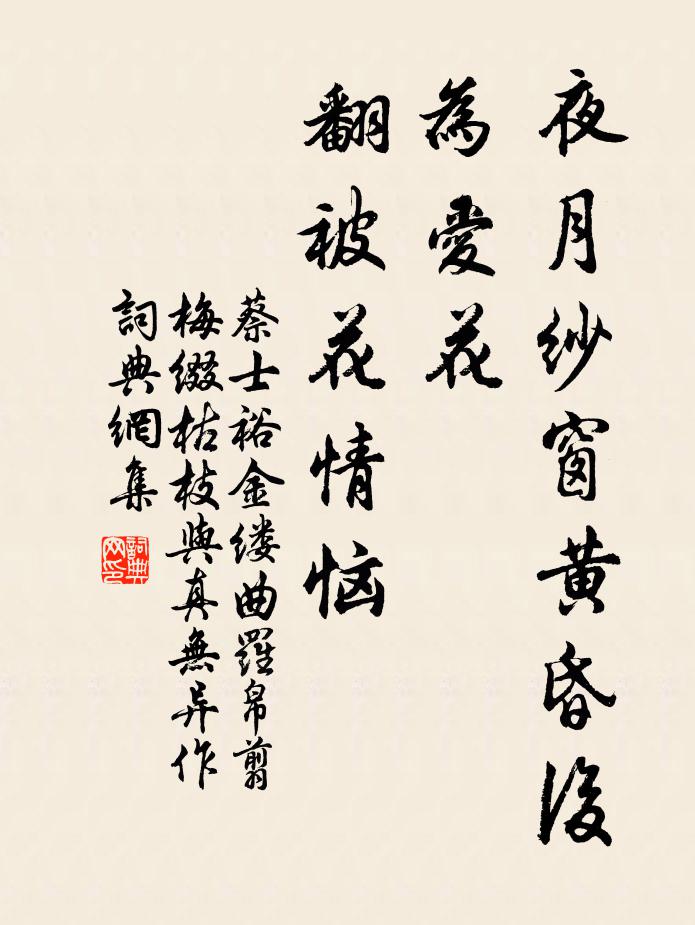 夜月纱窗黄昏後
為愛花
翻被花情恼
蔡士裕金缕曲羅帛翦
梅缀枯枝與真無异作
詞典網集
詞典网印